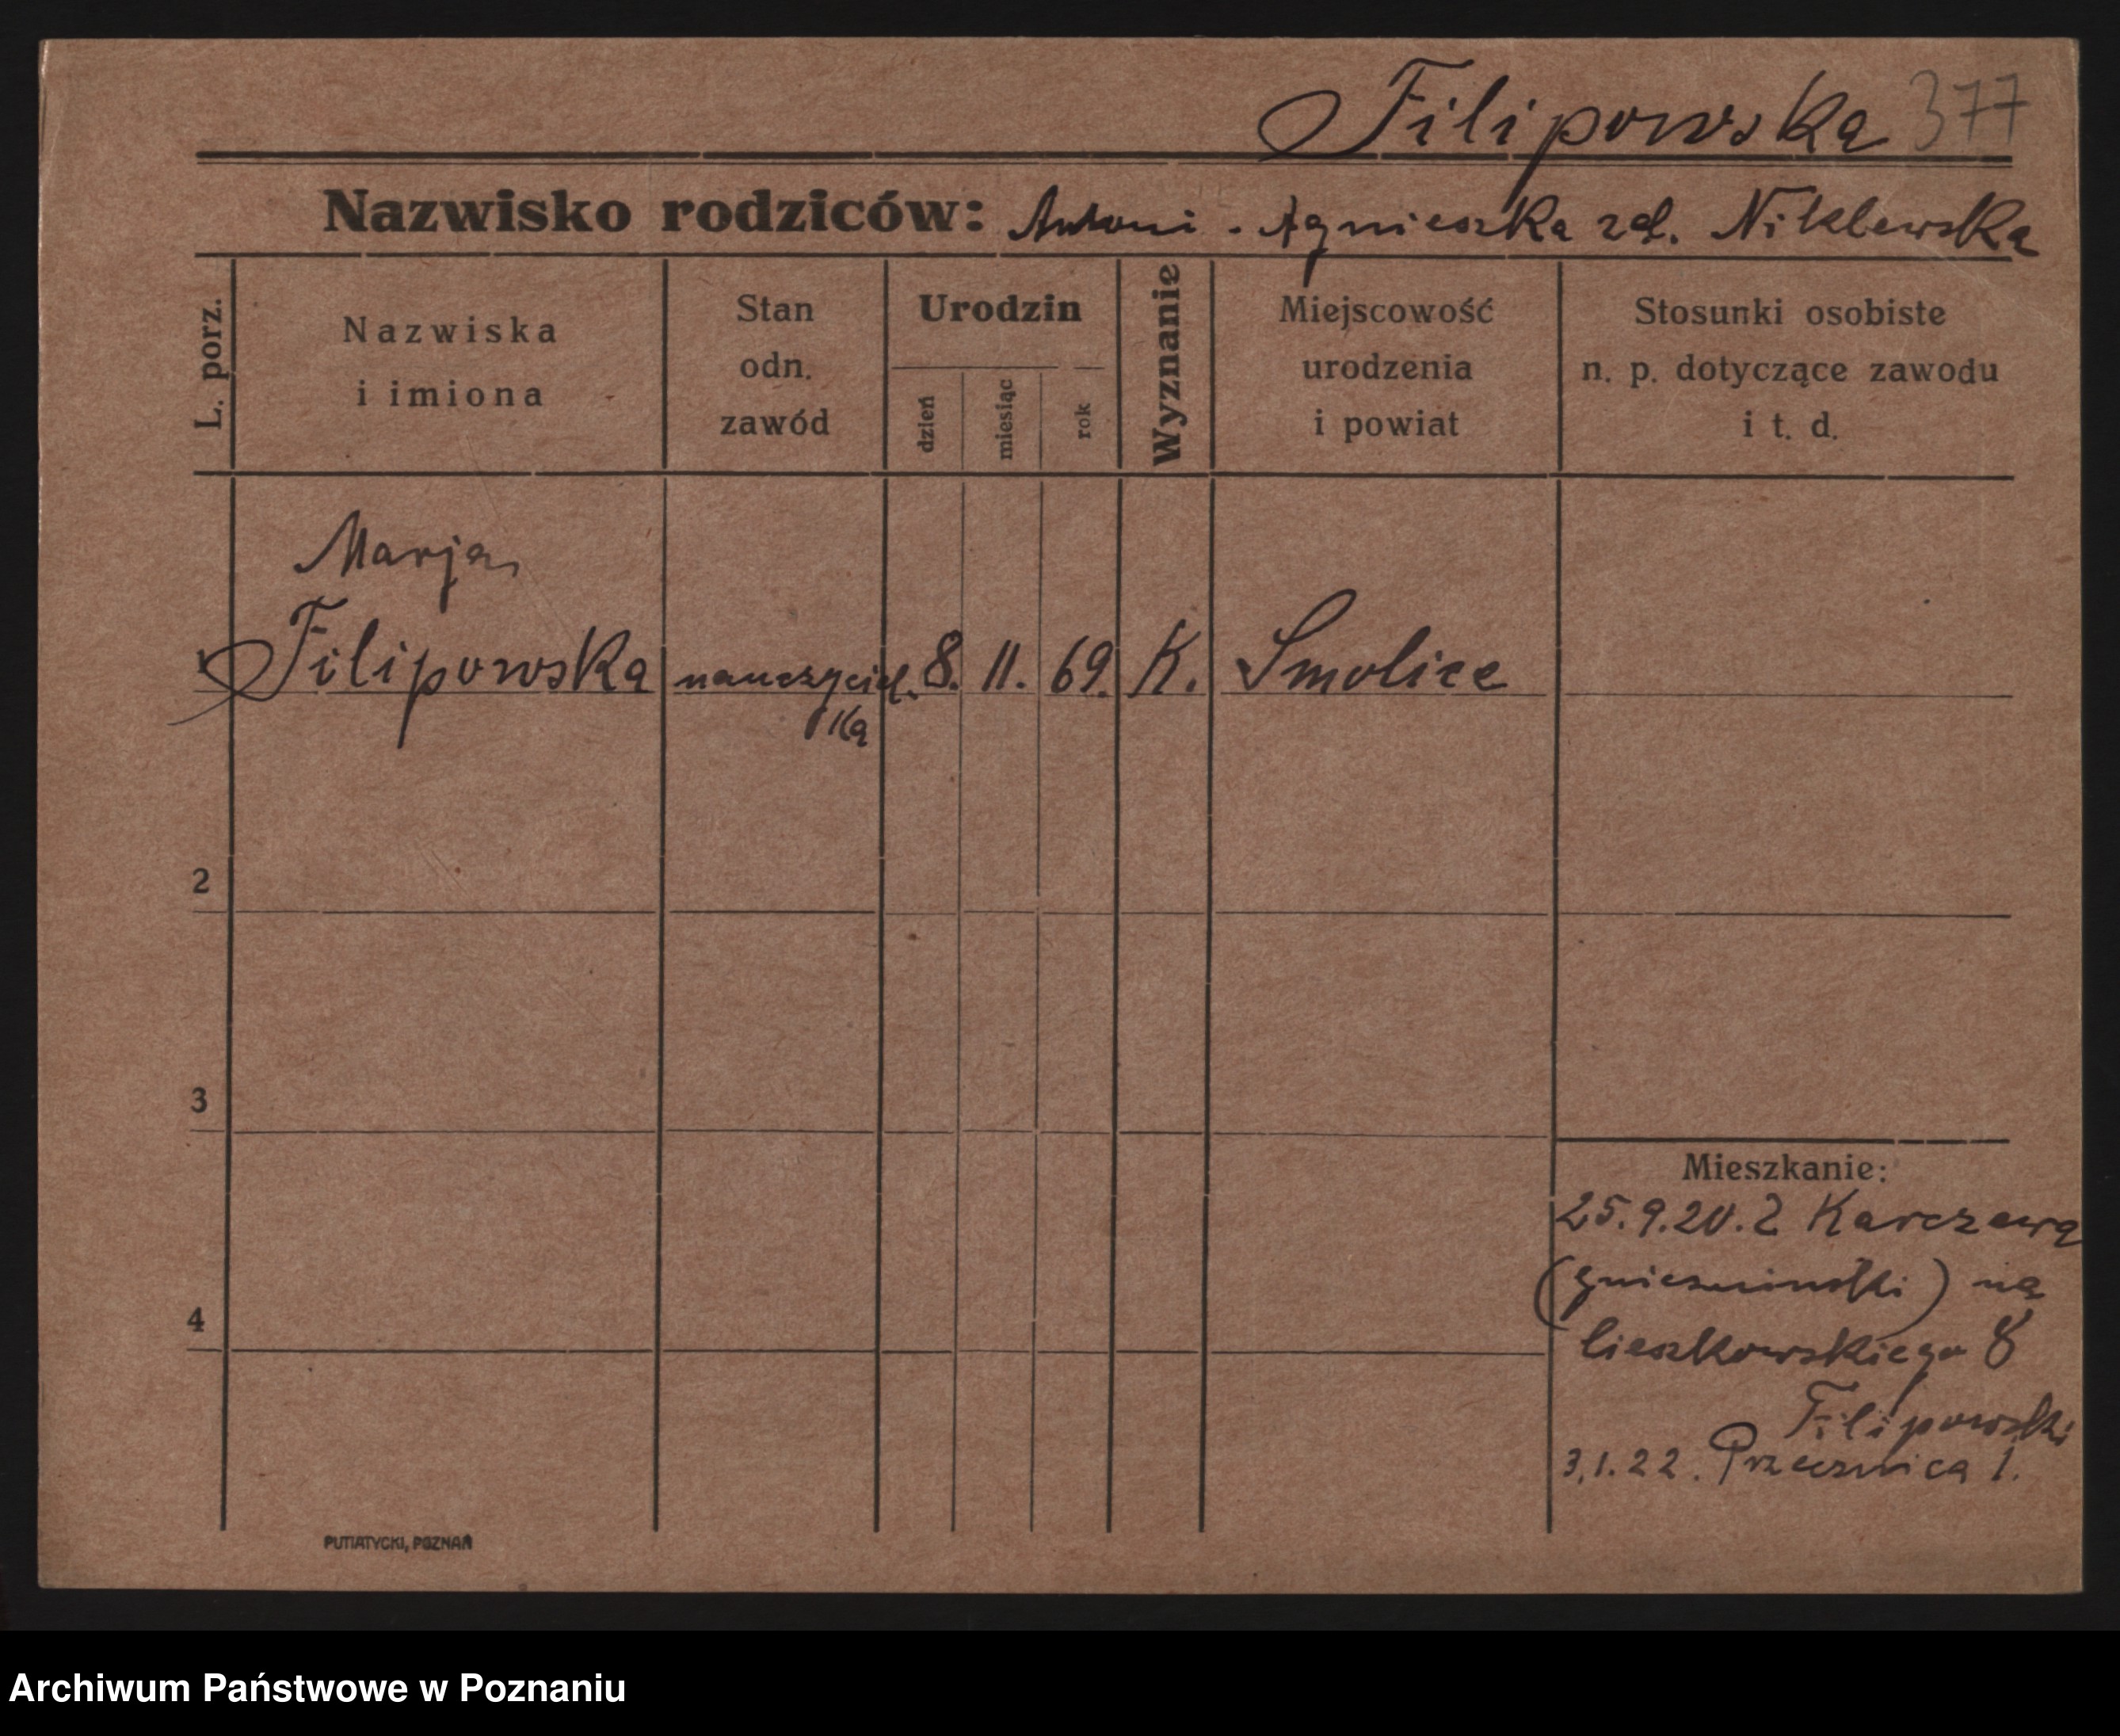 Filipowska 377
Nazwisko rodziców: Antoni - Agnieszka zd. Niklewska
L. porz.
Nazwiska
i imiona
Stan
odn.
zawód
Urodzin
dzień
miesiąc
rok
Wyznanie
Miejscowość
urodzenia
i powiat
Stosunki osobiste
n. p. dotyczące zawodu
i t. d.
Marja,
1 Filipowska nauczyciel. 8. 11. 69. K. Smolice
ka
2
3
4
Mieszkanie:
25.9.20. z Karczewa
(gnieźnieński) na
Cieszkowskiego 8
Filipowski
3.1.22. Przecznica 1.
PUTIATYCKI, POZNAŃ
Archiwum Państwowe w Poznaniu